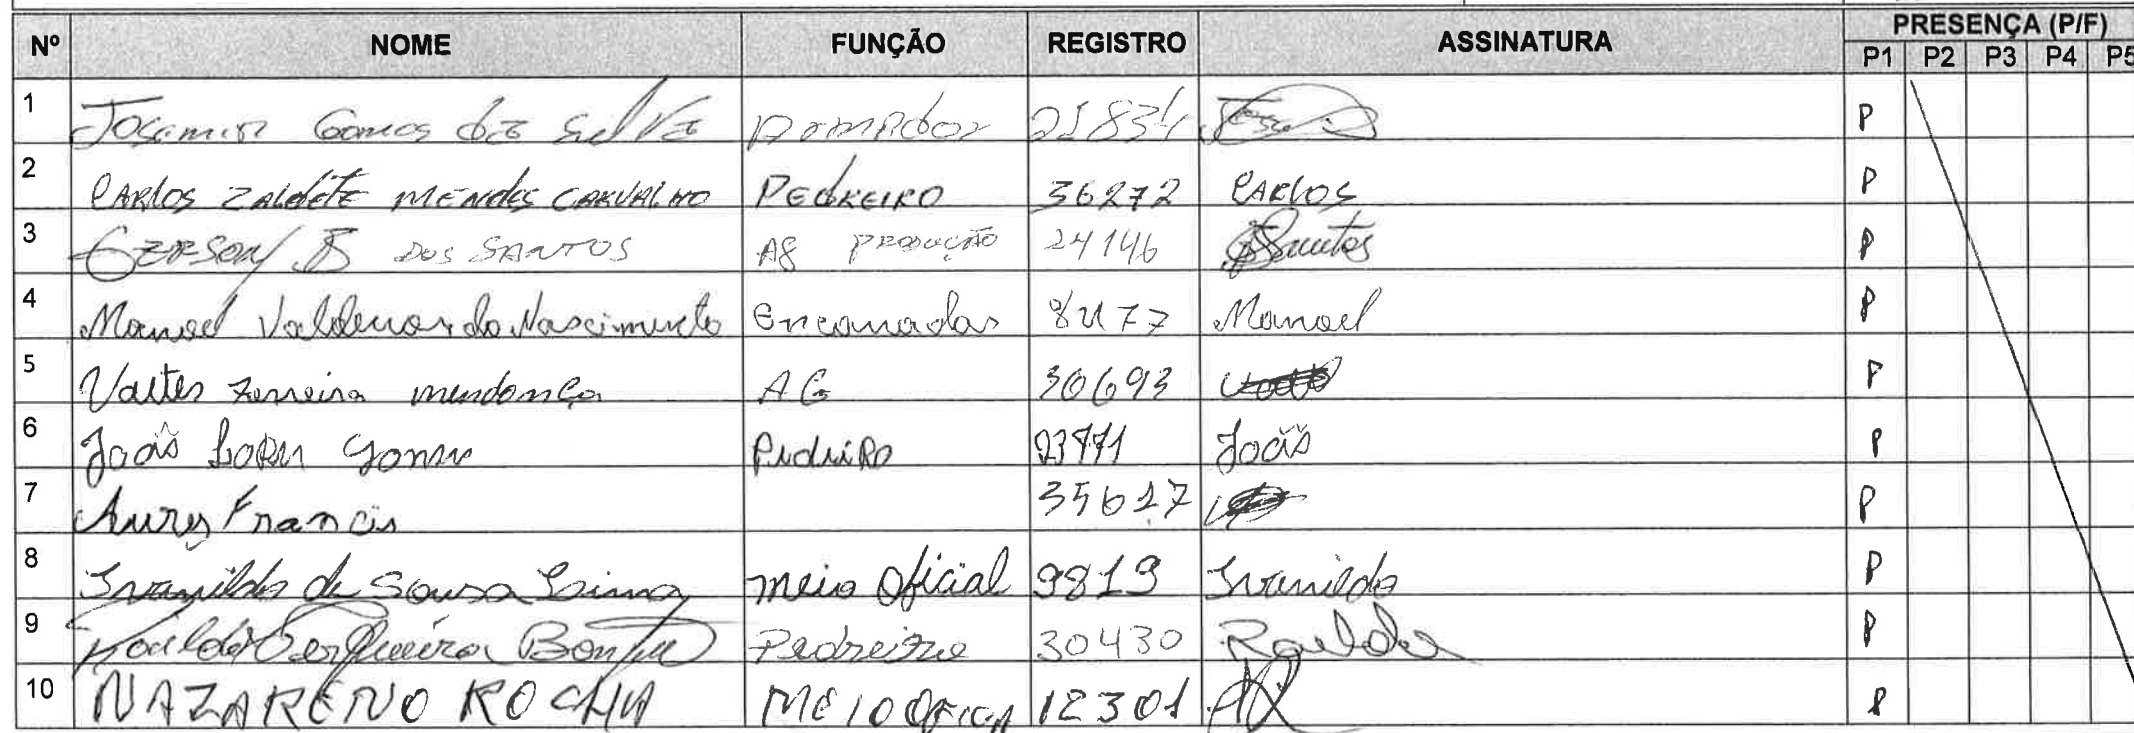 Nº NOME FUNÇÃO REGISTRO ASSINATURA PRESENÇA (P/F)
P1 P2 P3 P4 P5
1 Josemir Gomes da Silva Armador 21834 P
2 CARLOS ZALDETE MENDES CARVALHO PEDREIRO 36272 CARLOS P
3 GERSON B DOS SANTOS AG PRODUÇÃO 24146 Santos P
4 Manoel Valdemar do Nascimento Encanador 8477 Manoel P
5 Valter Ferreira mendonça AG 30693 P
6 João Gomes Pedreiro João P
7 Francis 35617 P
8 Ivanildo de Sousa Lima meio Oficial 9819 Ivanildo P
9 Cerqueira Pedreiro 30430 P
10 NAZARENO ROCHA MEIO OFICIA 12301 P